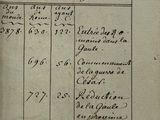 ans du monde. ans de Rome. ans avant J.C.
3878. 630. 122. Entrée des Ro
mains dans la
Gaule
696. 56. Commencement
de la guerre de
César.
727. 25. Réduction
de la Gaule
en province